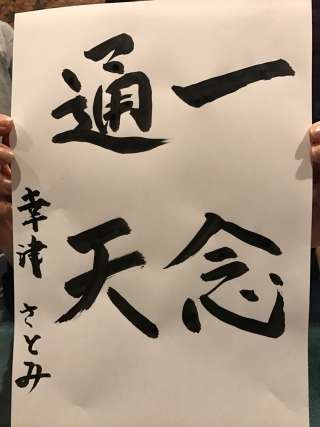 一念
通天
幸津 さとみ